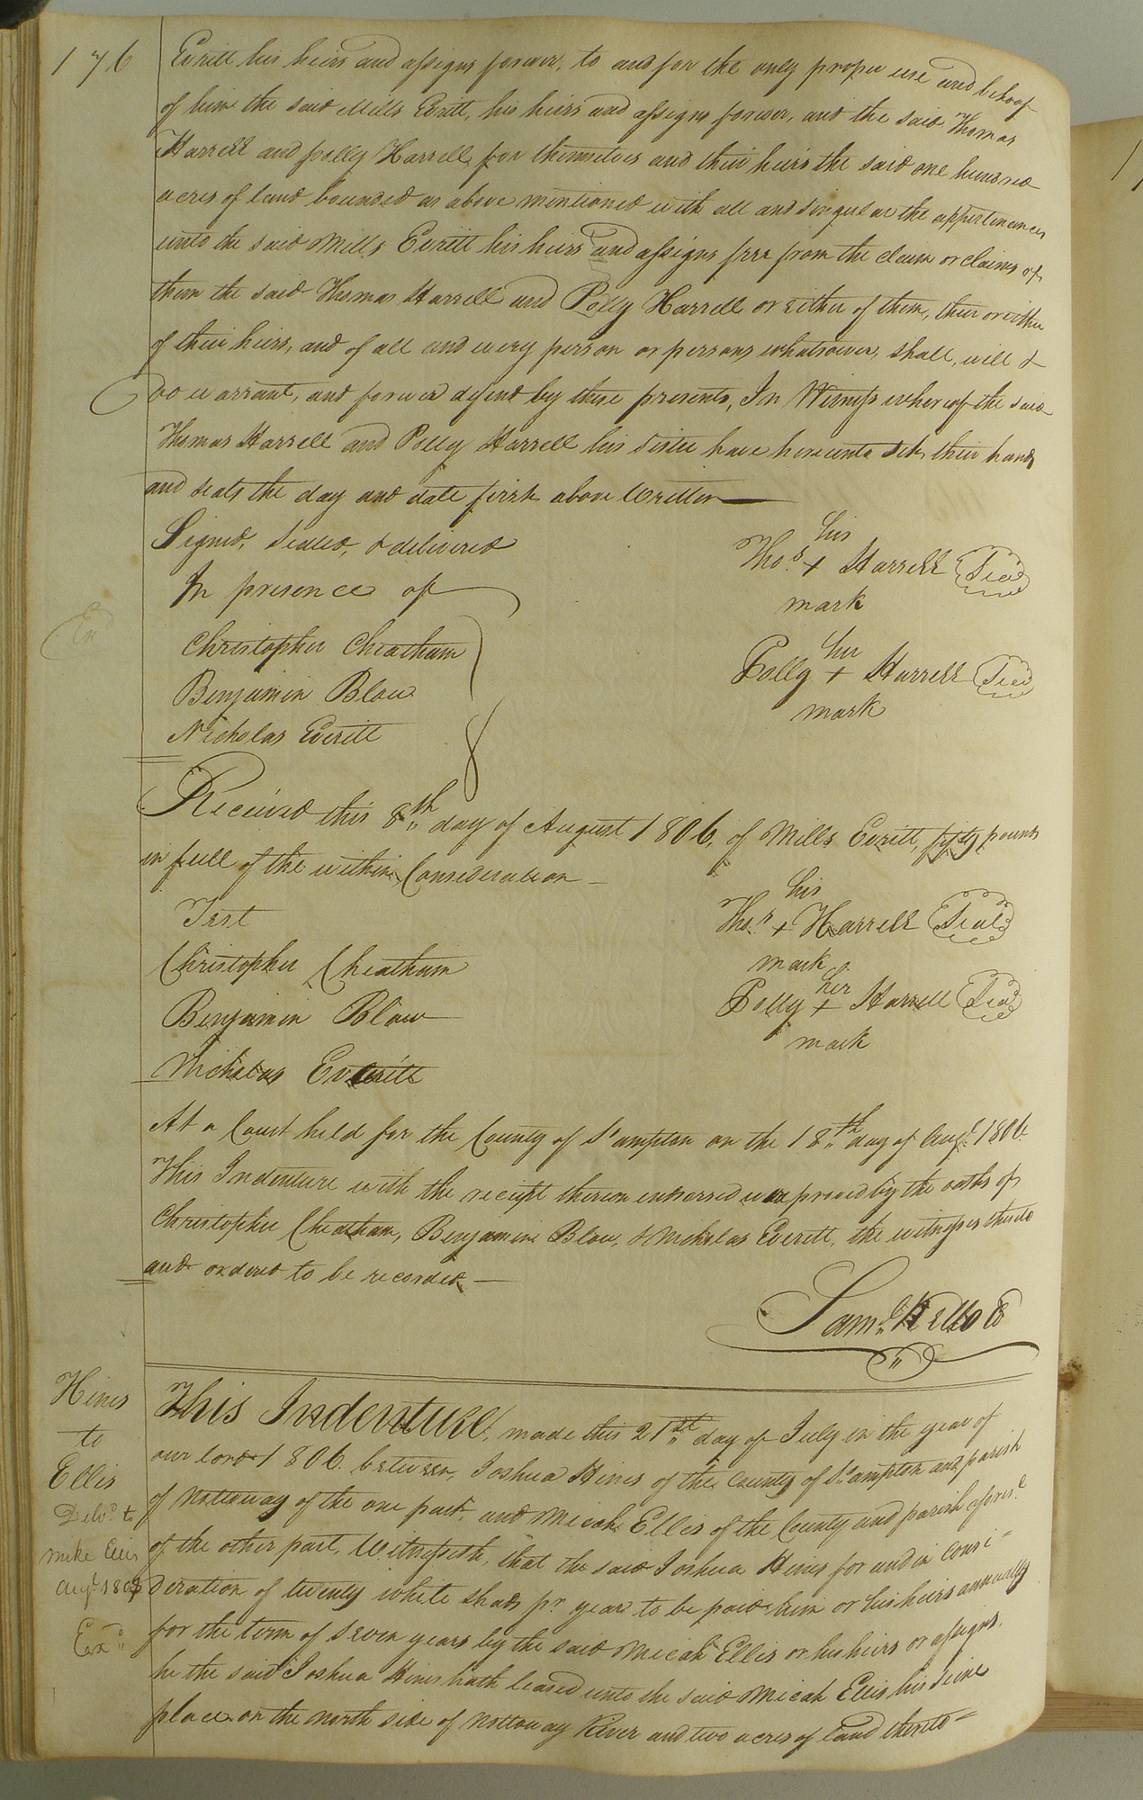 176
Everitt his heirs and assigns forever, to and for the only proper use and behoof
of him the said Mills Everitt, his heirs and assigns forever, and the said Thomas
Harrell and polly Harrell, for themselves and their heirs the said one hundred
acres of land bounded as above mentioned with all and singular the appertinances
unto the said Mills Everitt his heirs and assigns free from the claim or claims of
them the said Thomas Harrell and Polly Harrell or either of them, their or either
of their heirs, and of all and every person or persons whatsoever, shall, will &
do warrant, and forever defend by these presents, In Witness whereof the said
Thomas Harrell and Polly Harrell his sister have hereunto set their hands
and seals the day and date first above written
Signed, Sealed, & delivered
In presence of
Christopher Cheatham
Benjamin Blow
Nicholas Everitt
his
Thos. + Harrell Seal
mark
her
Polly + Harrell Seal
mark
Received this 8th day of August 1806, of Mills Everitt, fifty pounds
in full of the within Consideration
Test
Christopher Cheatham
Benjamin Blow
Nicholas Everitt
his
Thos. + Harrell Seal
mark
her
Polly + Harrell Seal
mark
At a Court held for the County of S'ampton on the 18th day of Augt. 1806
This Indenture with the receipt thereon endorsed was proved by the oaths of
Christopher Cheatham, Benjamin Blow, & Nicholas Everitt, the witnesses thereto
and ordered to be recorded
Saml. Kello
Hines
to
Ellis
Delvd. to
Mike Ellis
Augt.
Exd.
This Indenture, made this 21st day of July in the year of
our lord 1806. between, Joshua Hines of the County of S'ampton and parish
of Nottoway of the one part, and Micah Ellis of the County and parish aforesd.
of the other part, Witnesseth, that the said Joshua Hines for and in consi=
deration of twenty white shads pr. year to be paid him or his heirs annually
for the term of seven years by the said Micah Ellis or his heirs or assigns,
he the said Joshua Hines hath leased unto the said Micah Ellis his seine
place on the north side of Nottoway River and two acres of land thereto=